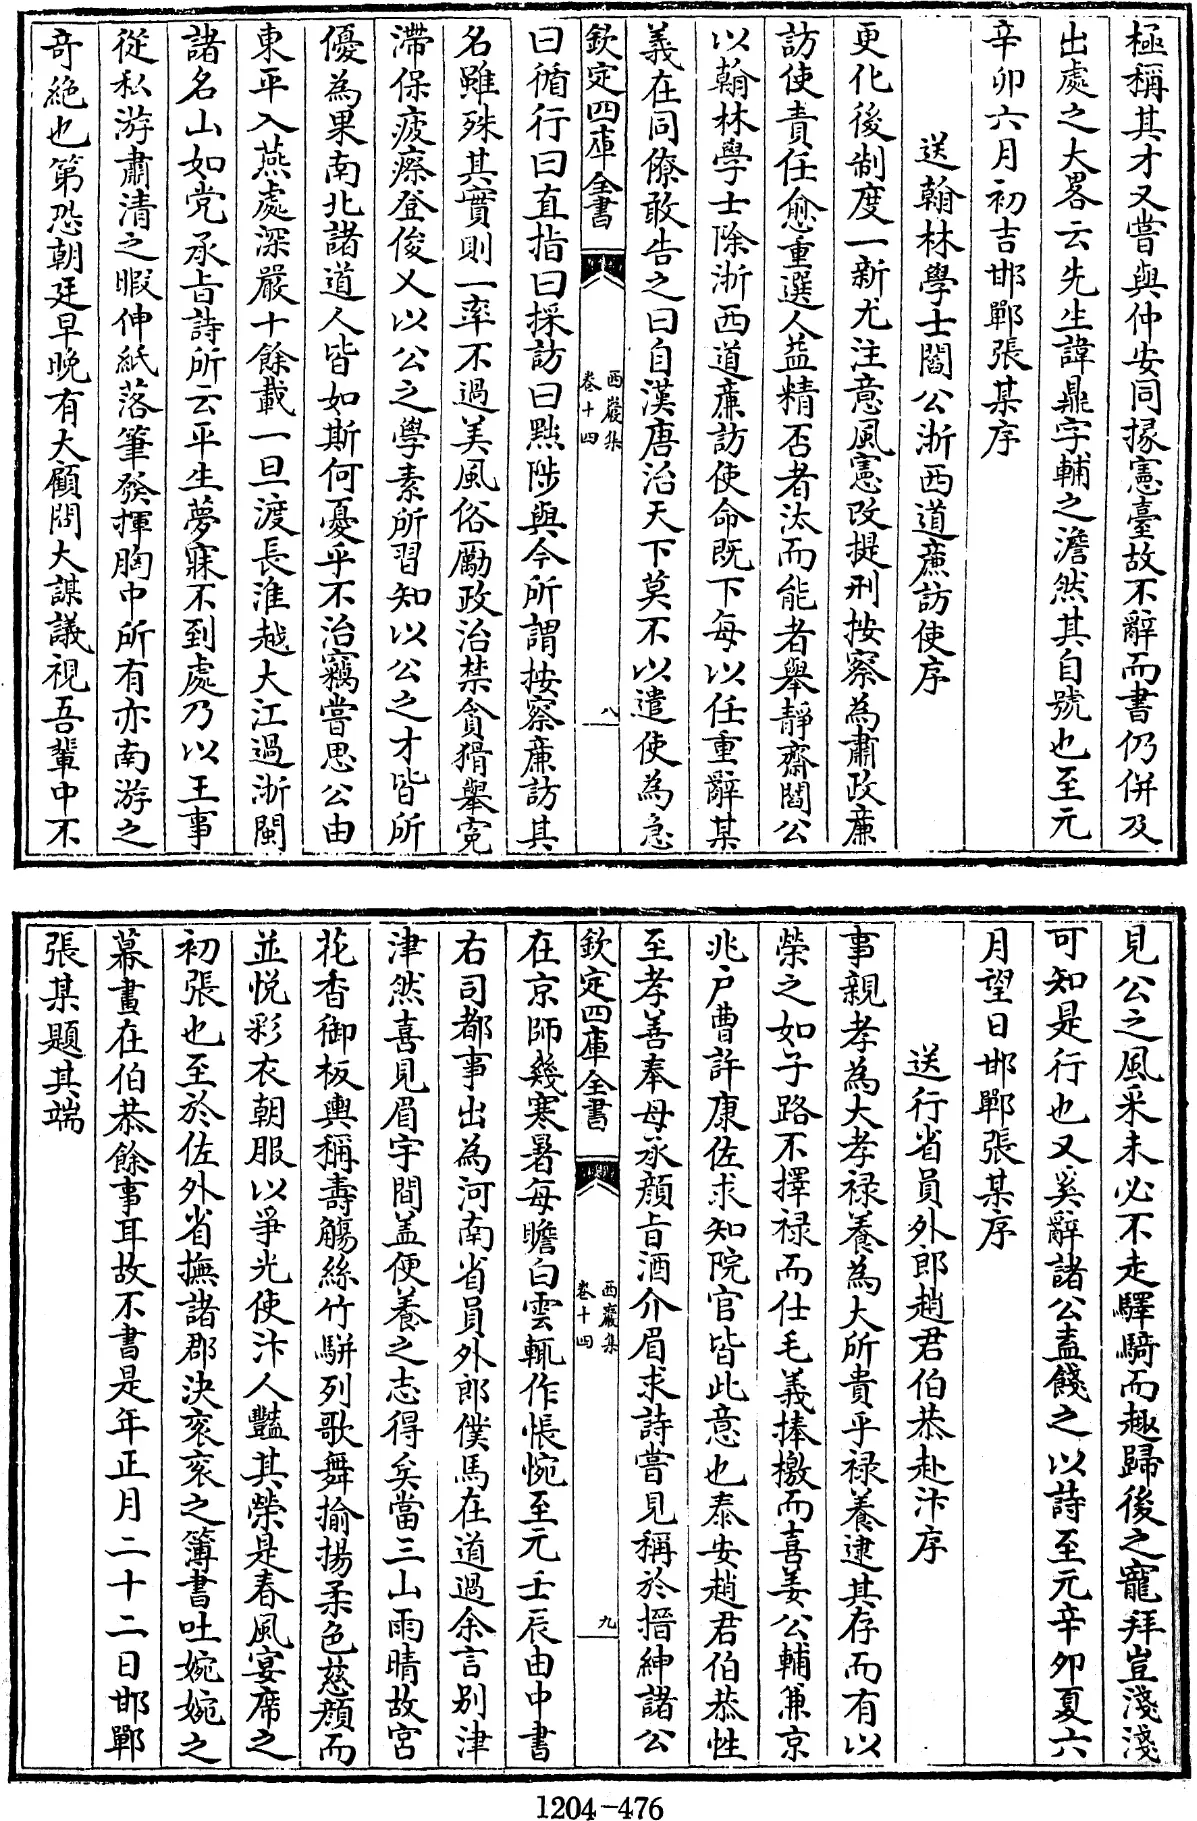 極稱其才又嘗與仲安同掾憲臺故不辭而書仍併及
出處之大畧云先生諱鼎字輔之澹然其自號也至元
辛卯六月初吉邯鄲張某序
送翰林學士閻公浙西道廉訪使序
更化後制度一新尤注意風憲改提刑按察為肅政廉
訪使責任愈重選人益精否者汰而能者舉靜齋閻公
以翰林學士除浙西道廉訪使命既下每以任重辭某
義在同僚敢告之曰自漢唐治天下莫不以遣使為急
欽定四庫全書
西巖集
卷十四
八
曰循行曰直指曰採訪曰黜陟與今所謂按察廉訪其
名雖殊其實則一率不過美風俗勵政治禁貪猾舉寃
滯保疲瘵登俊乂以公之學素所習知以公之才皆所
優為果南北諸道人皆如斯何憂乎不治竊嘗思公由
東平入燕處深嚴十餘載一旦渡長淮越大江過浙閩
諸名山如党承旨詩所云平生夢寐不到處乃以王事
從私游肅清之暇伸紙落筆發揮胸中所有亦南游之
奇絶也第恐朝廷早晚有大顧問大謀議視吾輩中不
見公之風采未必不走驛騎而趣歸後之寵拜豈淺淺
可知是行也又奚辭諸公盍餞之以詩至元辛卯夏六
月望日邯鄲張某序
送行省員外郎趙君伯恭赴汴序
事親孝為大孝禄養為大所貴乎禄養逮其存而有以
榮之如子路不擇禄而仕毛義捧檄而喜姜公輔兼京
兆户曹許康佐求知院官皆此意也泰安趙君伯恭性
至孝善奉母承顔旨酒介眉求詩嘗見稱於搢紳諸公
欽定四庫全書
西巖集
卷十四
九
在京師幾寒暑每瞻白雲輒作悵惋至元壬辰由中書
右司都事出為河南省員外郎僕馬在道過余言别津
津然喜見眉宇間盖便養之志得矣當三山雨晴故宮
花香御板輿稱壽觴絲竹駢列歌舞揄揚柔色慈顔而
並悦彩衣朝服以爭光使汴人豔其榮是春風宴席之
初張也至於佐外省撫諸郡決衮衮之簿書吐婉婉之
幕畫在伯恭餘事耳故不書是年正月二十二日邯鄲
張某題其端
1204-476